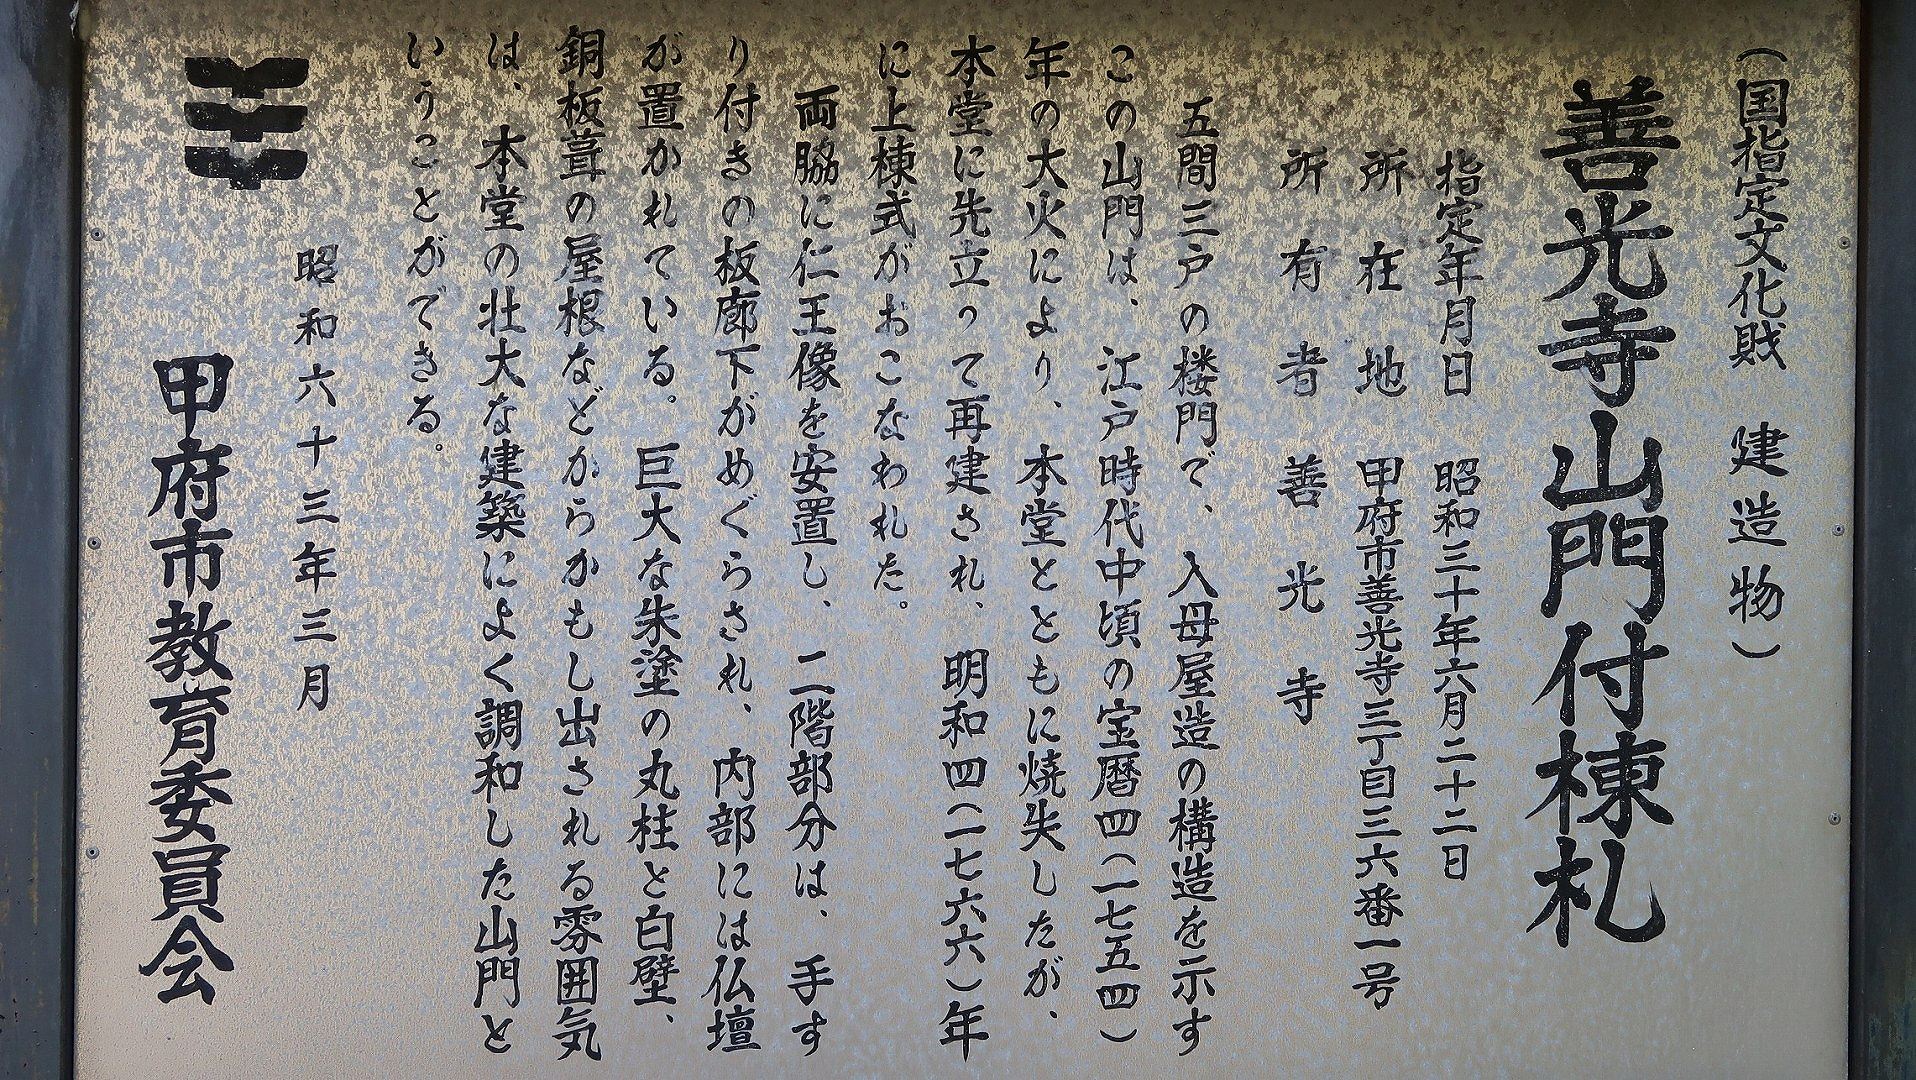 (国指定文化財　建造物)
善光寺山門付棟札
指定年月日　昭和三十年六月二十二日
所在地　甲府市善光寺三丁目三六番一号
所有者　善光寺
五間三戸の楼門で、入母屋造の構造を示す
この山門は、江戸時代中頃の宝暦四(一七五四)
年の大火により、本堂とともに焼失したが、
本堂に先立って再建され、明和四(一七六六)年
に上棟式がおこなわれた。
両脇に仁王像を安置し、二階部分は、手す
り付きの板廊下がめぐらされ、内部には仏壇
が置かれている。巨大な朱塗の丸柱と白壁、
銅板葺の屋根などからかもし出される雰囲気
は、本堂の壮大な建築によく調和した山門と
いうことができる。
昭和六十三年三月
甲府市教育委員会